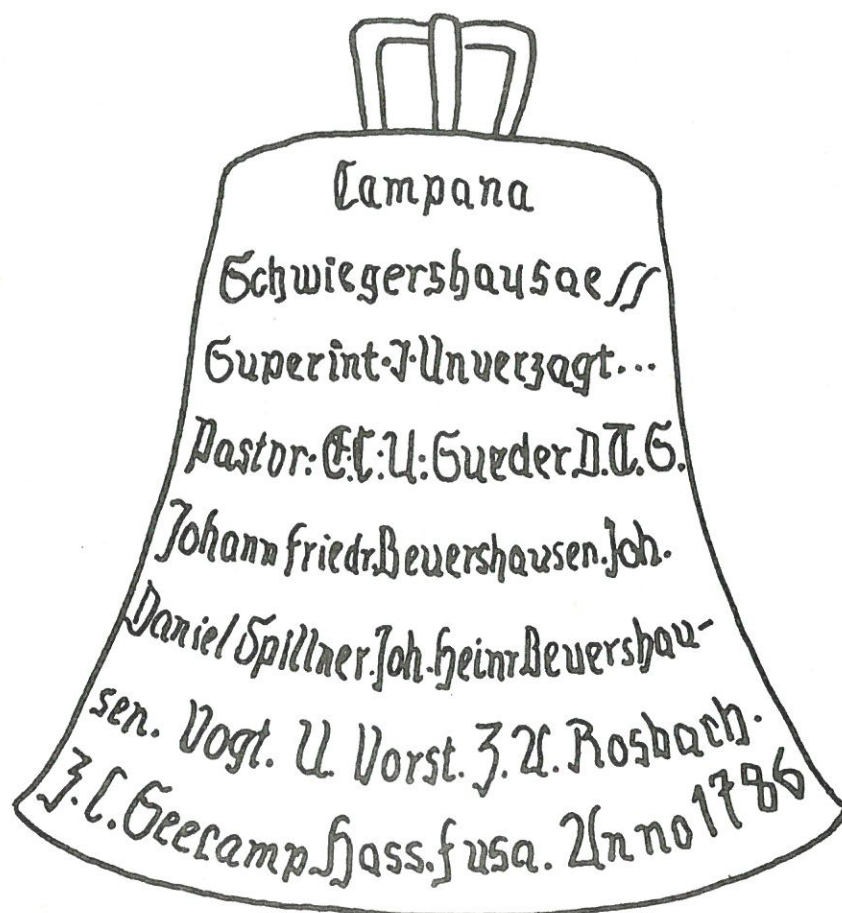 Campana
Schwiegershausae SS
Superint. J. Unverzagt...
Pastor: E. C. U: Sueder D. T. S.
Johann friedr. Beuershausen. Joh.
Daniel Spillner. Joh. Heinr Beuershau-
sen. Vogt. U. Vorst. J. A. Rosbach.
J. C. Seecamp Hass. fusa. Anno 1786